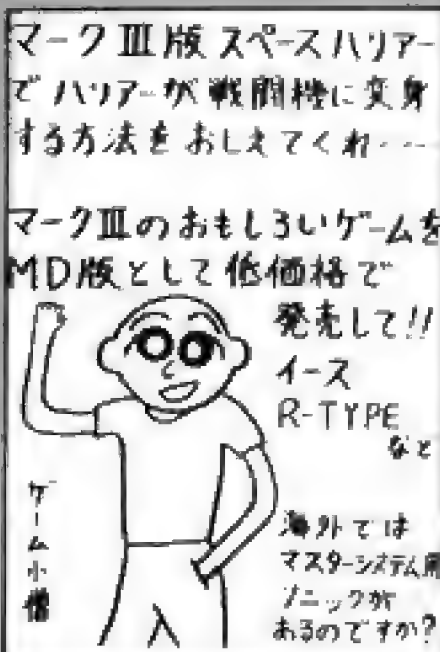 マークⅢ版スペースハリアー
でハリアーが戦闘機に変身
する方法をおしえてくれ…
マークⅢのおもしろいゲームを
MD版として低価格で
発売して!!
イース
R-TYPE
など
ゲーム小僧
海外では
マスターシステム用
ソニックが
あるのですか?